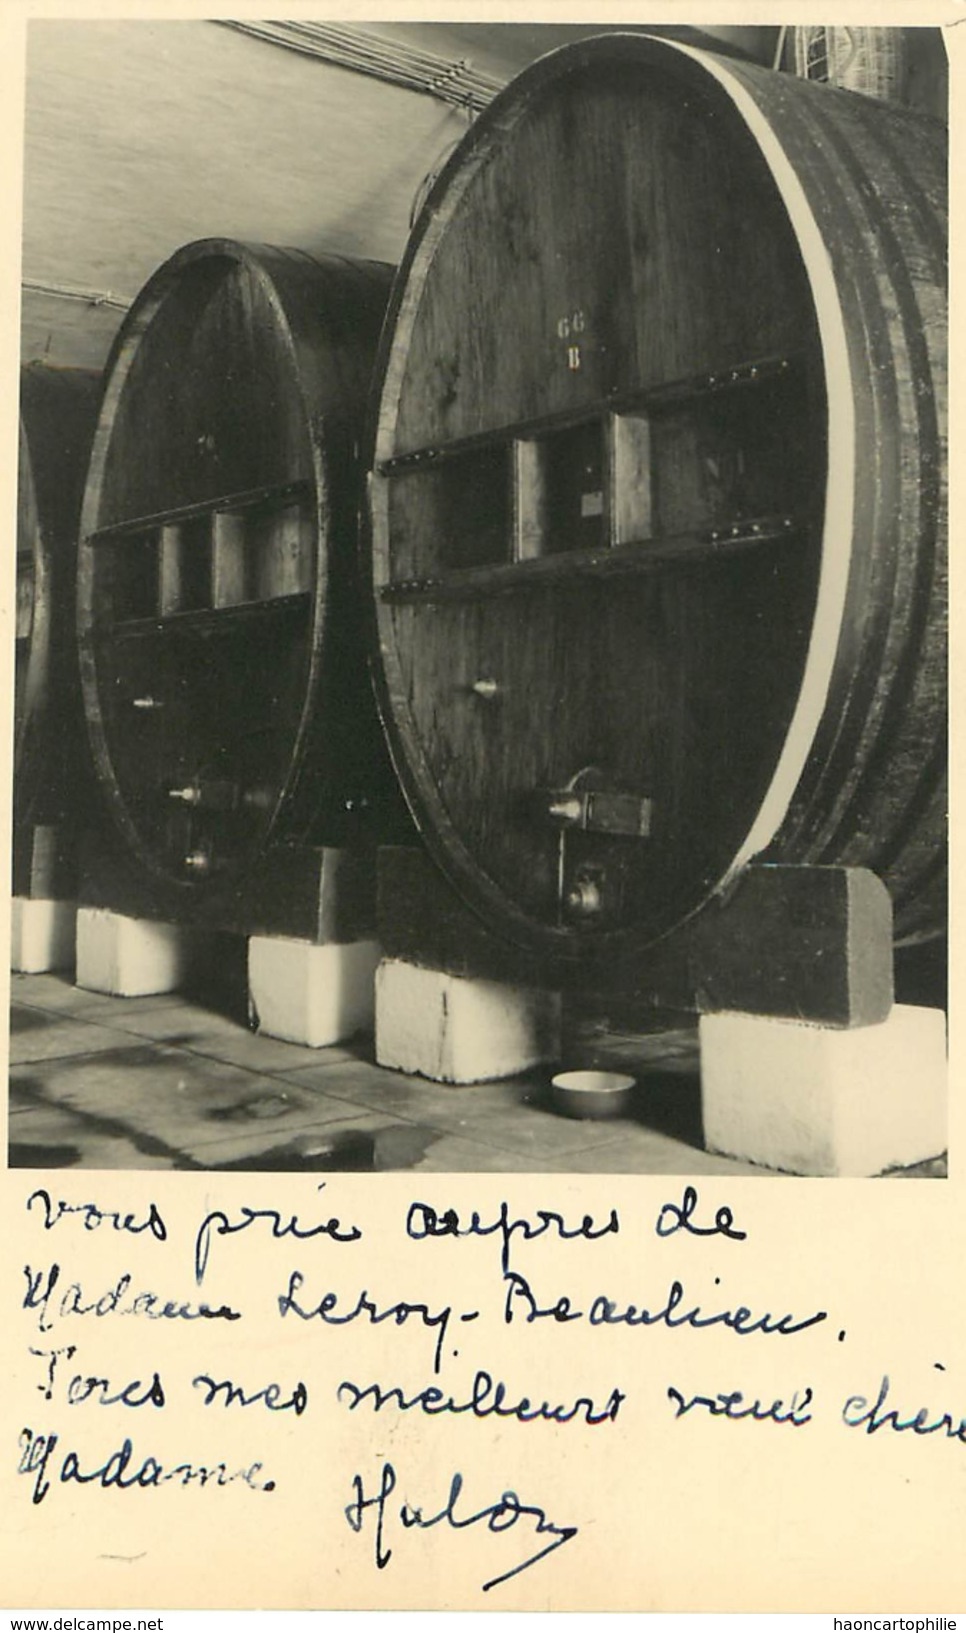 66
B
N 1
vous prie auprès de
Madame Leroy-Beaulieu.
Tous mes meilleurs vœux chère
Madame.
Hulon
https://www.delcampe.net
haoncartophilie